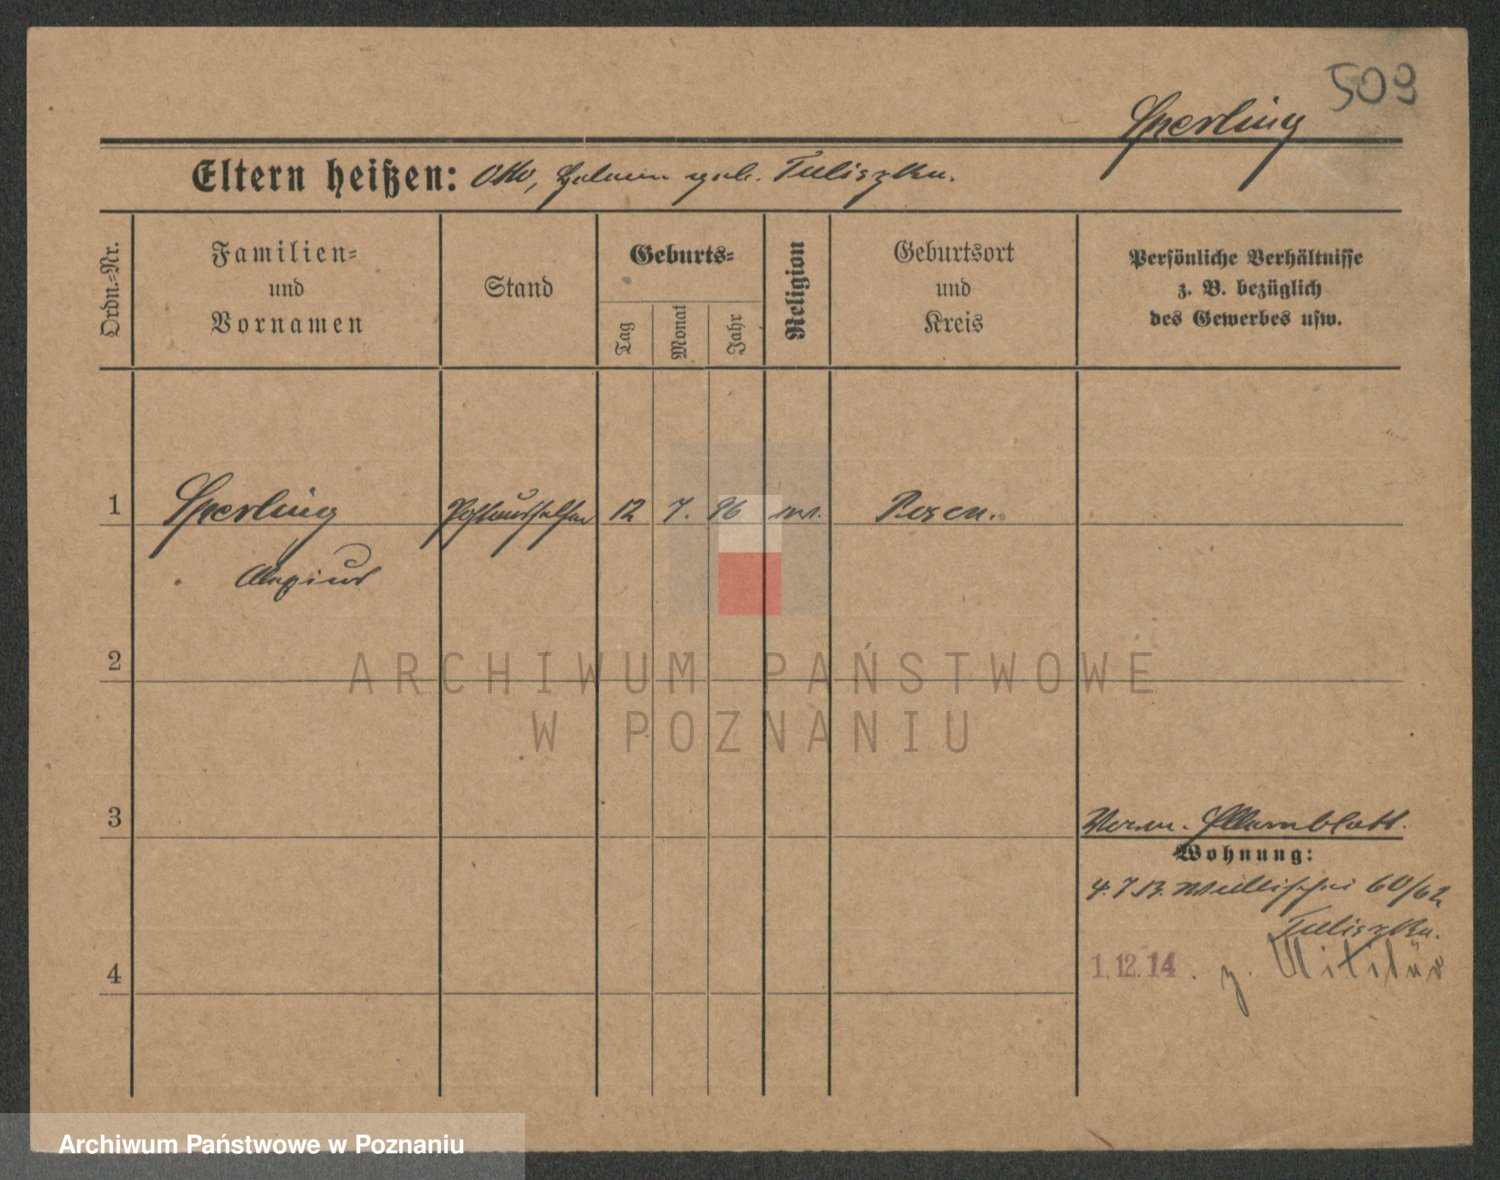 509
Sperling
Eltern heißen: Otto, geb. Tuliszka.
Ordn.-Nr.
Familien-
und
Vornamen
Stand
Geburts-
Tag
Monat
Jahr
Religion
Geburtsort
und
Kreis
Persönliche Verhältnisse
z. B. bezüglich
des Gewerbes usw.
1
Sperling
12
7.
96
Posen.
2
ARCHIWUM PAŃSTWOWE
W POZNANIU
3
Elternblatt.
Wohnung:
4.7.13. 60/62
Tuliszka.
4
1.12.14. z. Militär
Archiwum Państwowe w Poznaniu